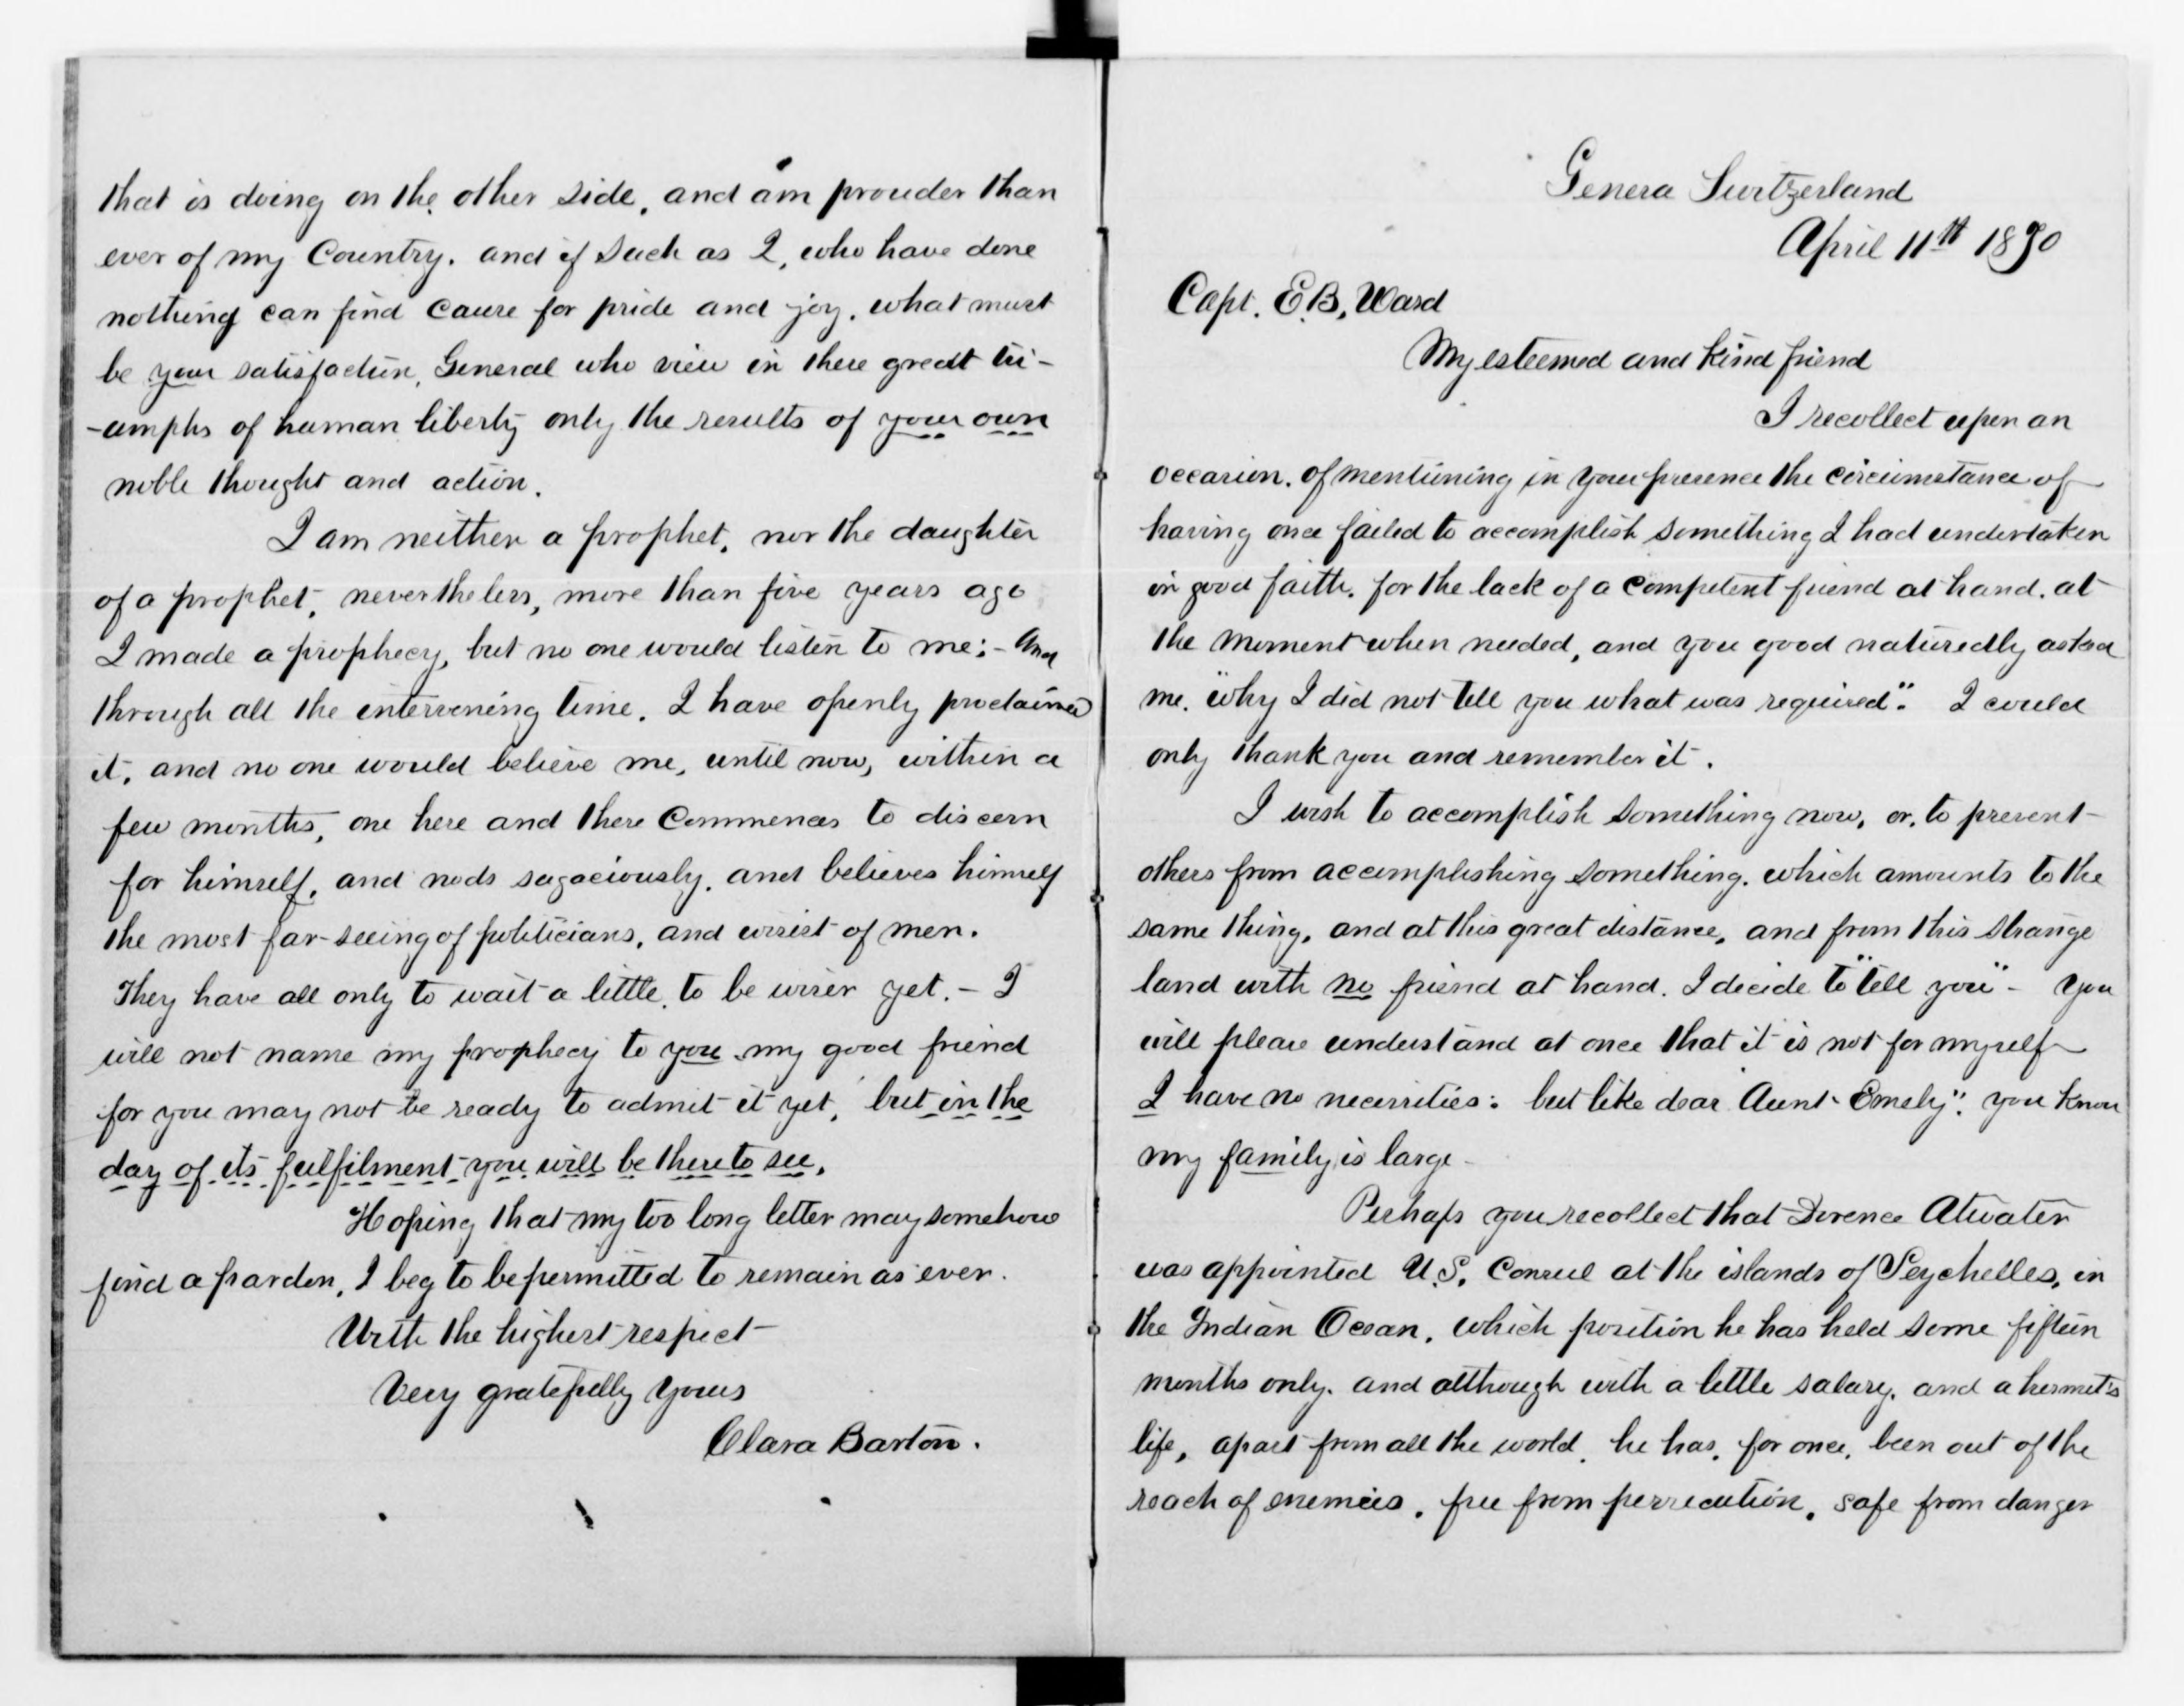 that is doing on the other side, and am prouder than
ever of my Country. and if such as I, who have done
nothing can find cause for pride and joy. what must
be your satisfaction, General who view in these great tri-
-umphs of human liberty only the results of your own
noble thought and action.
I am neither a prophet, nor the daughter
of a prophet, nevertheless, more than five years ago
I made a prophecy, but no one would listen to me; - And
through all the intervening time. I have openly proclaimed
it, and no one would believe me, until now, within a
few months, one here and there commences to discern
for himself, and nods sagaciously. and believes himself
the most far-seeing of politicians, and wisest of men.
They have all only to wait a little, to be wiser yet. - I
will not name my prophecy to you my good friend
for you may not be ready to admit it yet, but in the
day of its fulfilment you will be there to see.
Hoping that my too long letter may somehow
find a pardon, I beg to be permitted to remain as ever.
With the highest respect
Very gratefully yours
Clara Barton.
Geneva Switzerland
April 11th 1870
Capt. E.B. Ward
My esteemed and kind friend
I recollect upon an
occasion. of mentioning in your presence the circumstance of
having once failed to accomplish something I had undertaken
in good faith. for the lack of a competent friend at hand. at
the moment when needed, and you good naturedly asked
me. "why I did not tell you what was required". I could
only thank you and remember it.
I wish to accomplish something now, or, to prevent
others from accomplishing something. which amounts to the
same thing, and at this great distance, and from this strange
land with no friend at hand. I decide to "tell you" - You
will please understand at once that it is not for myself
I have no necessities: but like dear "Aunt Emely". you know
my family is large -
Perhaps you recollect that Dorence Atwater
was appointed U.S. Consul at the islands of Seychelles, in
the Indian Ocean, which position he has held some fifteen
months only. and although with a little salary. and a hermit's
life, apart from all the world, he has, for once, been out of the
reach of enemies. free from persecution, safe from danger